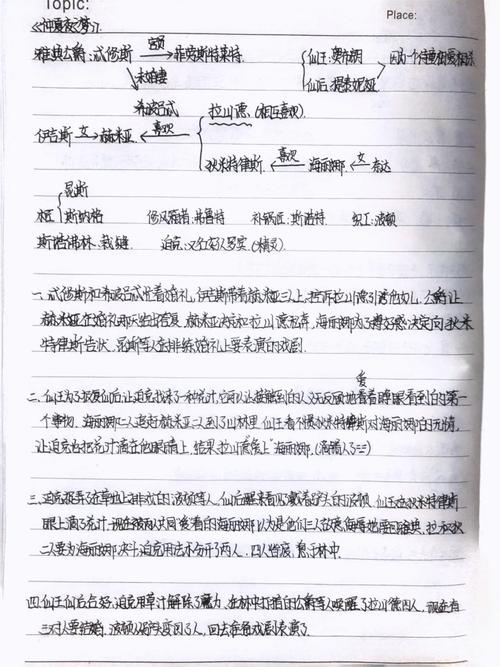 Topic:
Place:
《仲夏夜之梦》.
雅典公爵:忒修斯 → 菲劳斯特莱特
仙王:奥布朗
仙后:提泰妮娅
因为一个侍童相互
未婚妻
希波吕忒
拉山德(相互喜欢)
伊吉斯 女→ 赫米亚 ← 喜欢
狄米特律斯 ← 喜欢 海丽娜 ← 女
昆斯
木匠 斯纳格 修风箱者:弗鲁特 补锅匠:斯诺特 织工:波顿
斯塔弗林:裁缝 迫克:又名好人罗宾(精灵)
一、忒修斯和希波吕忒忙着婚礼,伊吉斯带着赫米亚三人上,控诉拉山德引诱他女儿,公爵让
赫米亚在婚礼那天给出答复,赫米亚决定和拉山德私奔,海丽娜为了博好感决定向狄米
特律斯告状,昆斯等人在排练婚礼上要表演的戏剧.
二、仙王为了报复仙后让迫克找来了一种花汁,它可以让接触到的人义无反顾地爱着睁眼看到的第一
个事物.海丽娜二人追赶赫米亚二人到了山林里,仙王看不惯狄米特律斯对海丽娜的无情,
让迫克去把花汁滴在他眼睛上,结果拉山德"爱上"海丽娜.(滴错人了==)
三、迫克捉弄了在草地上排戏的波顿等人,仙后醒来看见戴着驴头的波顿,仙王在狄米特律斯
眼上滴了花汁,现在被两人共同"爱"着的海丽娜以为是他们三人故意侮辱她要回雅典,拉和狄
二人要为海丽娜决斗,迫克用法术分开了两人,四人皆疲,息于林中.
四、仙王仙后合好,迫克用草汁解除了魔力,在林中打猎的公爵等人唤醒了拉山德四人,现在有
三对人要结婚,波顿从驴头变回了人,回去准备戏剧表演了.